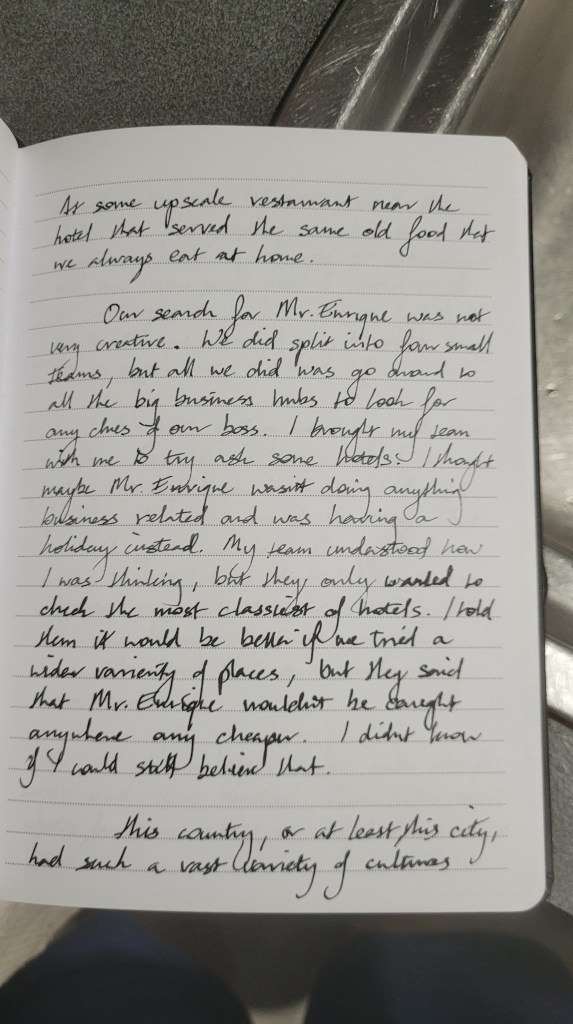 At some upscale restaurant near the
hotel that served the same old food that
we always eat at home.
Our search for Mr. Enrique was not
very creative. We did split into four small
teams, but all we did was go around to
all the big business hubs to look for
any clues of our boss. I brought my team
with me to try ask some hotels. I thought
maybe Mr. Enrique wasn't doing anything
business related and was having a
holiday instead. My team understood how
I was thinking, but they only wanted to
check the most classiest of hotels. I told
them it would be better if we tried a
wider varienty of places, but they said
that Mr. Enrique wouldn't be caught
anywhere any cheaper. I didn't know
if I could still believe that.
This country, or at least this city,
had such a vast variety of cultures